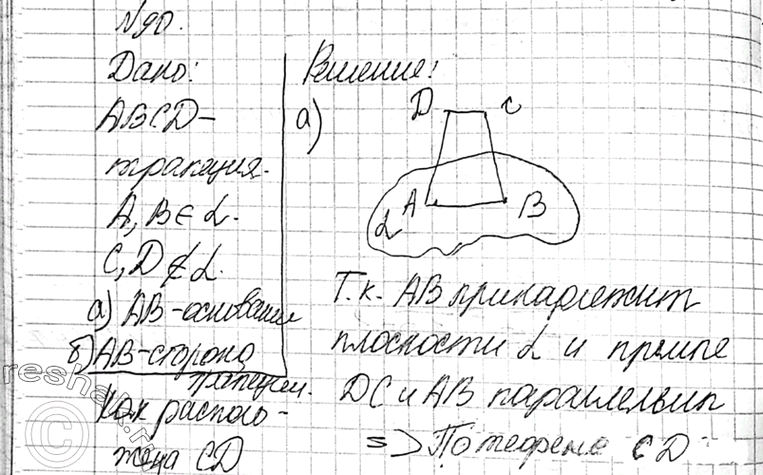 №90.
Дано:
ABCD-
трапеция.
A, B ∈ α.
C, D ∉ α.
а) AB-основание
б) AB-сторона
трапеции.
Как располо-
жена CD
Решение:
а)
D C
A B
α
Т.к. AB принадлежит
плоскости α и прямые
DC и AB параллельны
=> По теореме CD